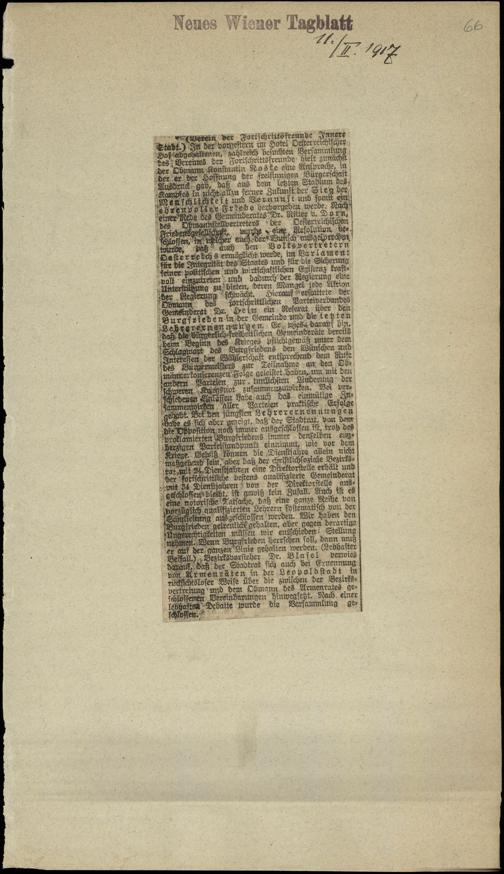 Neues Wiener Tagblatt
66
11./II. 1917
(Verein der Fortschrittsfreunde Innere
Stadt.) In der vorgestern im Hotel Oesterreichischer
Hof abgehaltenen, zahlreich besuchten Versammlung
des Vereines der Fortschrittsfreunde hielt zunächst
der Obmann Konstantin Noske eine Ansprache, in
der er der Hoffnung der freisinnigen Bürgerschaft
Ausdruck gab, daß aus dem letzten Stadium des
Kampfes in nicht allzu ferner Zukunft der Sieg der
Menschlichkeit und Vernunft und somit ein
ehrenvoller Friede hervorgehen werde. Nach
einer Rede des Gemeinderates Dr. Ritter v. Dorn,
des Obmannstellvertreters der Oesterreichischen
Friedensgesellschaft, wurde eine Resolution be-
schlossen, in welcher auch der Wunsch ausgesprochen
wurde, daß auch den Volksvertretern
Oesterreichs ermöglicht werde, im Parlament
für die Integrität des Staates und für die Sicherung
seiner politischen und wirtschaftlichen Existenz kraft-
voll einzutreten und dadurch der Regierung eine
Unterstützung zu bieten, deren Mangel jede Aktion
der Regierung schwächt. Hierauf erstattete der
Obmann des fortschrittlichen Parteiverbandes
Gemeinderat Dr. Hein ein Referat über den
Burgfrieden in der Gemeinde und die letzten
Lehrerernennungen. Er wies darauf hin,
daß die bürgerlich-freiheitlichen Gemeinderäte bereits
beim Beginn des Krieges pflichtgemäß unter dem
Schlagwort des Burgfriedens den Wünschen und
Interessen der Wählerschaft entsprechend dem Rufe
des Bürgermeisters zur Teilnahme an den Ob-
männerkonferenzen Folge geleistet haben, um mit den
andern Parteien zur tunlichsten Linderung der
schweren Kriegsnot zusammenzuwirken. Bei ver-
schiedenen Anlässen habe auch das einmütige Zu-
sammenwirken aller Parteien praktische Erfolge
gehabt. Bei den jüngsten Lehrerernennungen
habe es sich aber gezeigt, daß der Stadtrat, von dem
die Opposition noch immer ausgeschlossen ist, trotz des
proklamierten Burgfriedens immer denselben eng-
herzigen Parteistandpunkt einnimmt, wie vor dem
Kriege. Gewiß können die Dienstjahre allein nicht
maßgebend sein, aber daß der christlichsoziale Bezirks-
rat mit 24 Dienstjahren eine Direktorstelle erhält und
der fortschrittliche bestens qualifizierte Gemeinderat
mit 34 Dienstjahren von der Direktorstelle aus-
geschlossen bleibt, ist gewiß kein Zufall. Auch ist es
eine notorische Tatsache, daß eine ganze Reihe von
vorzüglich qualifizierten Lehrern systematisch von der
Schulleitung ausgeschlossen werden. Wir haben den
Burgfrieden getreulich gehalten, aber gegen derartige
Ungerechtigkeiten müssen wir entschieden Stellung
nehmen. Wenn Burgfrieden herrschen soll, dann muß
er auf der ganzen Linie gehalten werden. (Lebhafter
Beifall.) Bezirksvorsteher Dr. Blasel verwies
darauf, daß der Stadtrat sich auch bei Ernennung
von Armenräten in der Leopoldstadt in
rücksichtsloser Weise über die zwischen der Bezirks-
vertretung und dem Obmann des Armenrates ge-
schlossenen Vereinbarungen hinwegsetzt. Nach einer
lebhaften Debatte wurde die Versammlung ge-
schlossen.